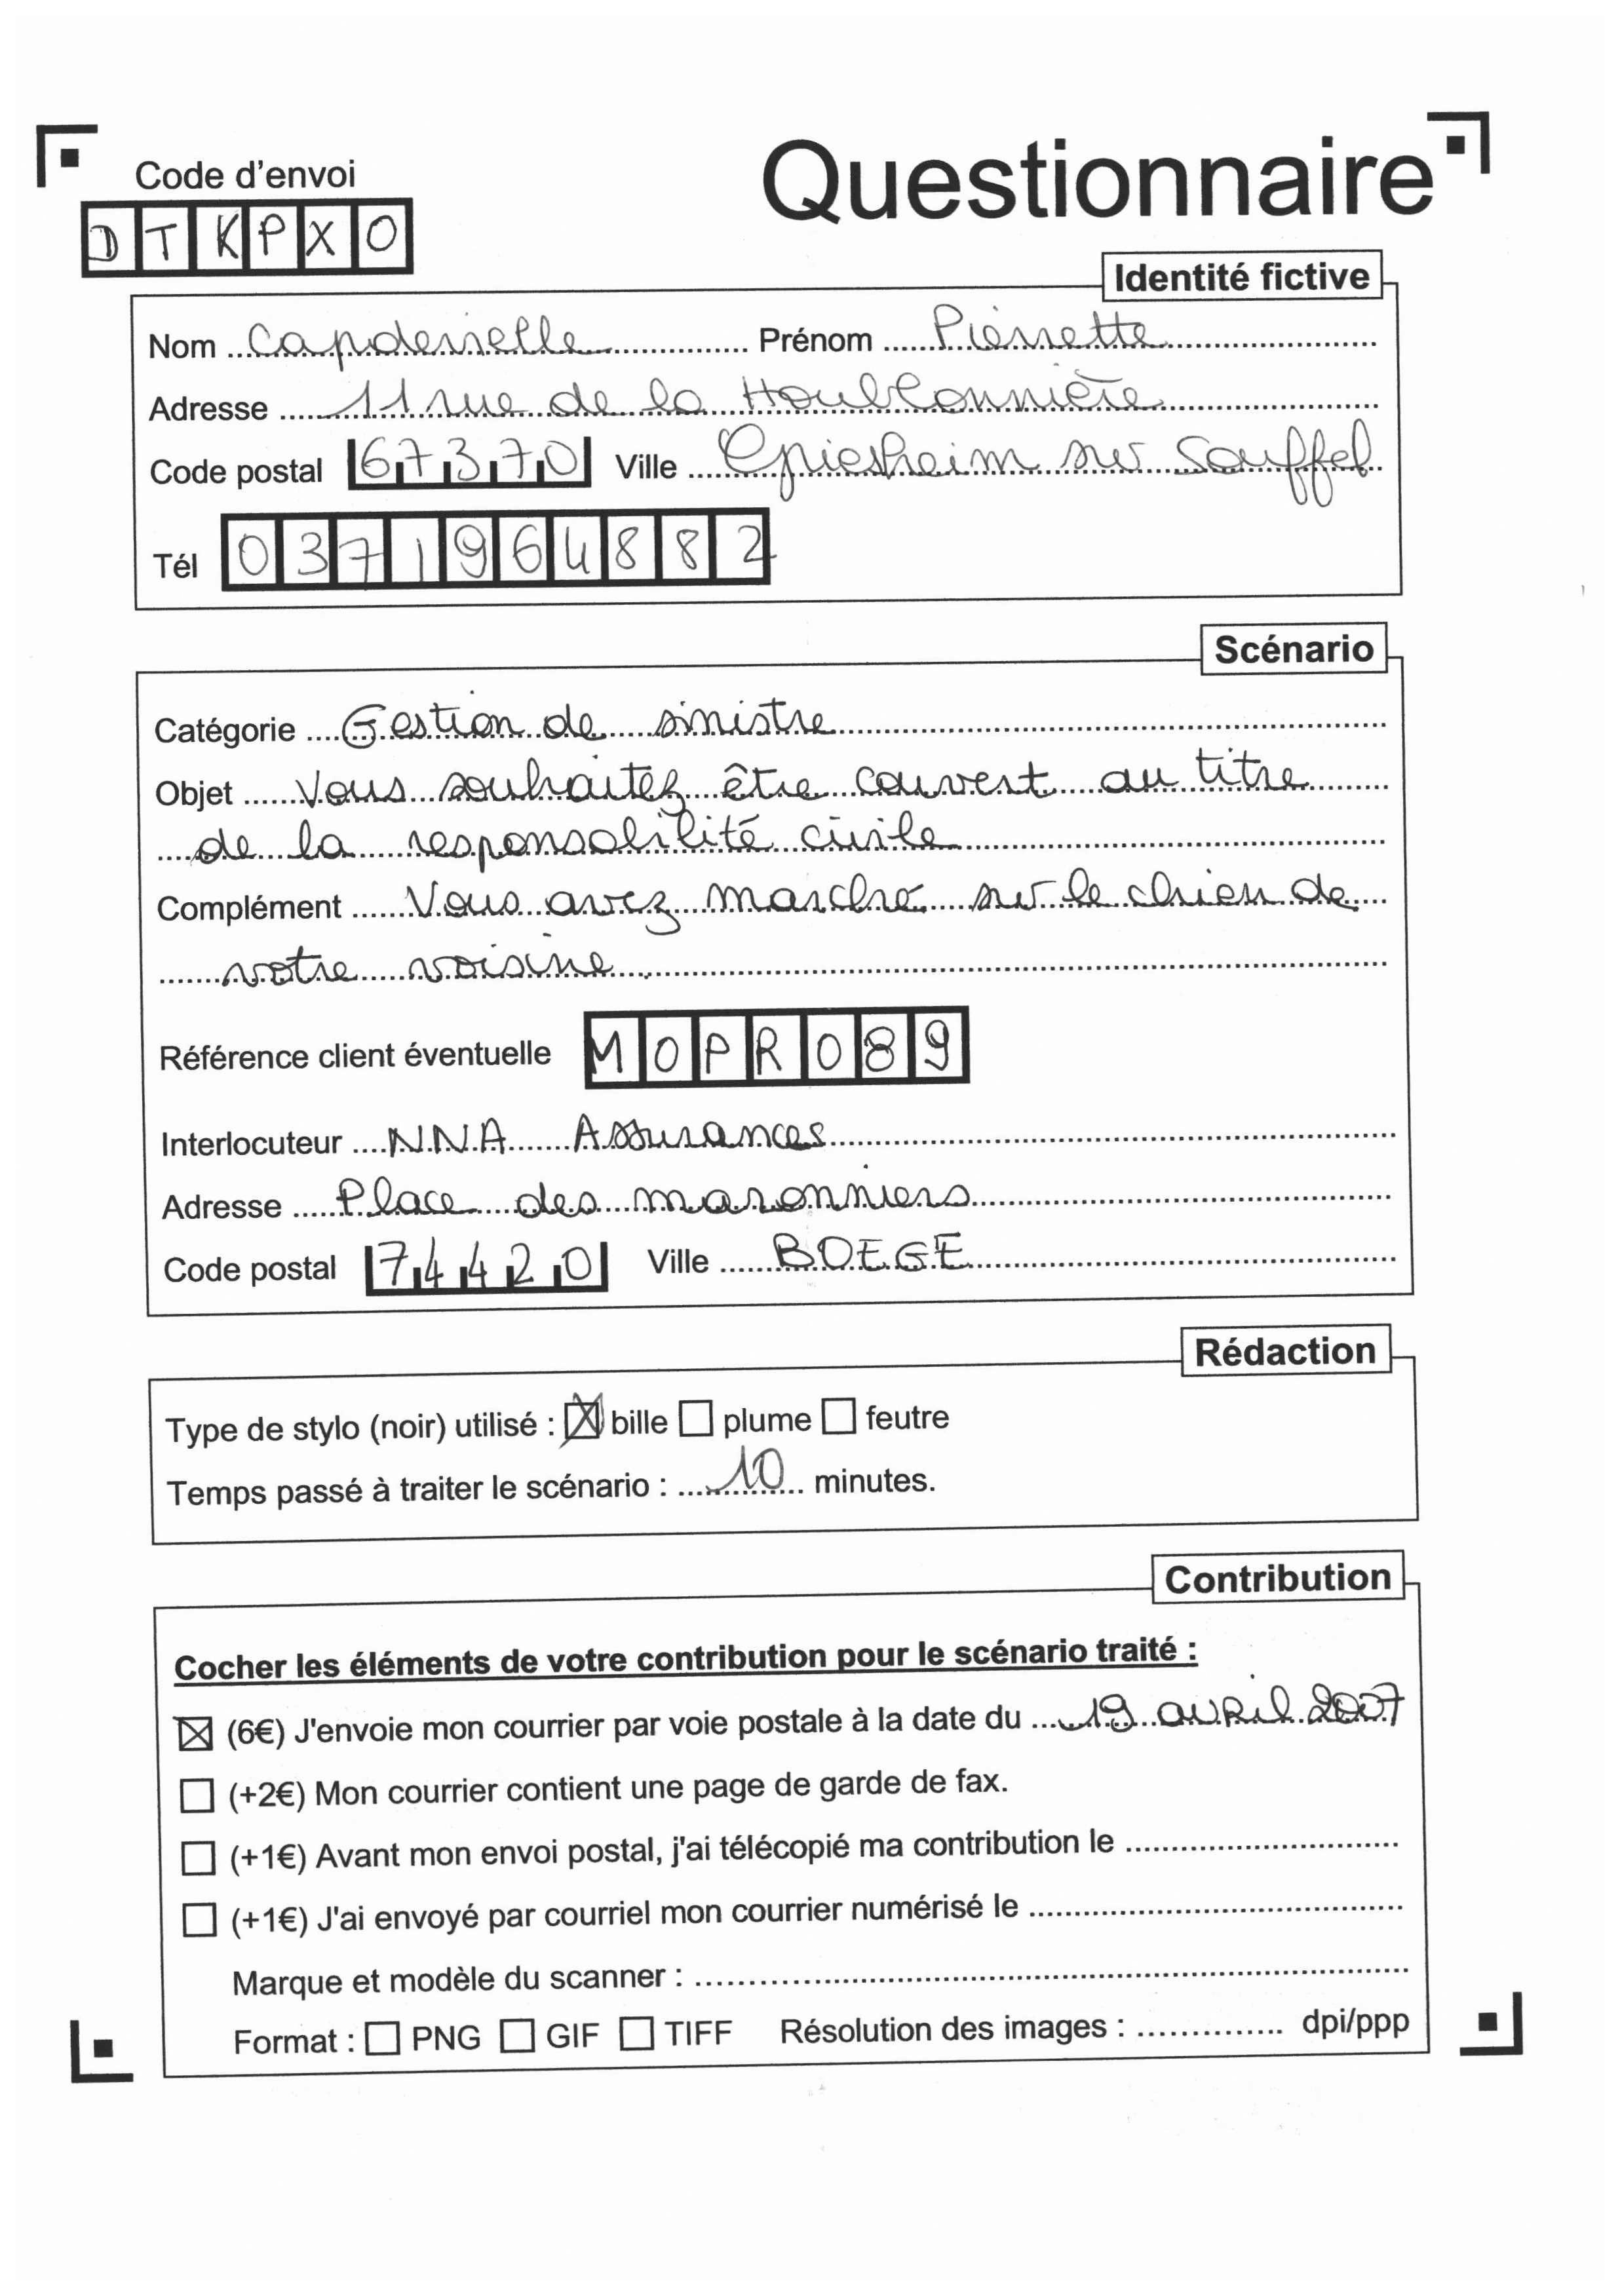 Questionnaire
Code d'envoi
DTKPXO
Identité fictive
Nom Capdevielle Prénom Pierrette
Adresse 11 rue de la Houblonnière
Code postal 67370 Ville Griesheim sur Souffel
Tél 0371964882
Scénario
Catégorie Gestion de sinistre
Objet Vous souhaitez être couvert au titre
de la responsabilité civile
Complément Vous avez marché sur le chien de
votre voisine.
Référence client éventuelle MOPR089
Interlocuteur NNA Assurances
Adresse Place des maronniers
Code postal 74420 Ville BOEGE
Rédaction
Type de stylo (noir) utilisé : bille plume feutre
Temps passé à traiter le scénario : 10 minutes.
Contribution
Cocher les éléments de votre contribution pour le scénario traité :
(6€) J'envoie mon courrier par voie postale à la date du 19 avril 2007
(+2€) Mon courrier contient une page de garde de fax.
(+1€) Avant mon envoi postal, j'ai télécopié ma contribution le
(+1€) J'ai envoyé par courriel mon courrier numérisé le
Marque et modèle du scanner :
Format : PNG GIF TIFF Résolution des images : dpi/ppp